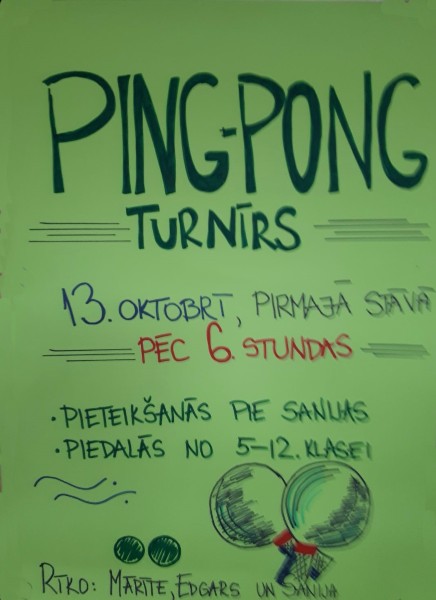 PING-PONG
TURNĪRS
13. OKTOBRĪ, PIRMAJĀ STĀVĀ
PĒC 6. STUNDAS
· PIETEIKŠANĀS PIE SANIJAS
· PIEDALĀS NO 5-12. KLASEI
RĪKO: MĀRĪTE, EDGARS UN SANIJA